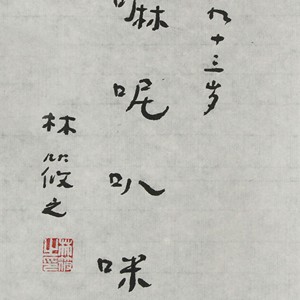 九十三岁
嘛呢叭咪
林筱之